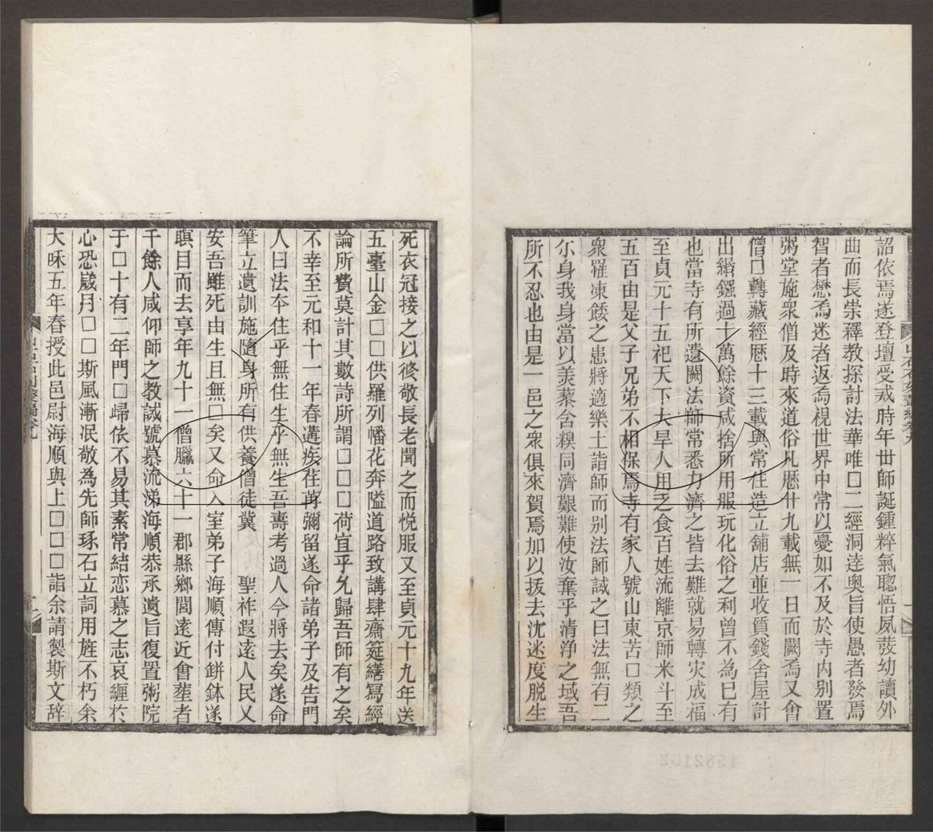 詔依焉遂登壇受戒時年丗師誕鍾粹氣聰悟夙發幼讀外
曲而長崇釋教探討法華唯□二經洞達奥旨使愚者發焉
智者懋焉迷者返焉視世界中常以憂如不及於寺内别置
粥堂施衆僧及時來道俗凡曆廿九載無一日而闕焉又會
僧□轉藏經曆十三載與常住造立舖店並收質錢舍屋計
出緡鏹過十萬餘資咸捨所用服玩化俗之利曾不為已有
也當寺有所遺闕法師常悉力濟之皆去難就易轉灾成福
至貞元十五祀天下大旱人用乏食百姓流離京師米斗至
五百由是父子兄弟不相保焉寺有家人號山東苦□類之
衆罹凍餧之患將適樂土詣師而别法師誡之曰法無有二
尓身我身當以美藜含糗同濟艱難使汝棄乎清浄之域吾
所不忍也由是一邑之衆俱來賀焉加以拔去沈迷度脱生
死衣冠接之以彼敬長老聞之而悦服又至貞元十九年送
五臺山金□□供羅列幡花奔隘道路致講肆齋筵繕寫經
論所費莫計其數詩所謂□□□荷宜乎允歸吾師有之矣
不幸至元和十一年春遘疾荏苒彌留遂命諸弟子及告門
人曰法夲住乎無住生乎無生吾壽考過人今將去矣遂命
筆立遺訓施隨身所有供養僧徒冀　　聖祚遐遠人民乂
安吾雖死由生且無□矣又命入室弟子海順傳付餅鉢遂
瞑目而去享年九十一僧臘六十一郡縣鄉閭遠近會塟者
千餘人咸仰師之教誡號慕流涕海順恭承遺旨復置粥院
于□十有二年門□歸依不易其素常結恋慕之志哀纒扵
心恐嵗月□□斯風漸泯敬為先師琢石立詞用旌不朽余
大味五年春授此邑尉海順與上□□□詣余請製斯文辞